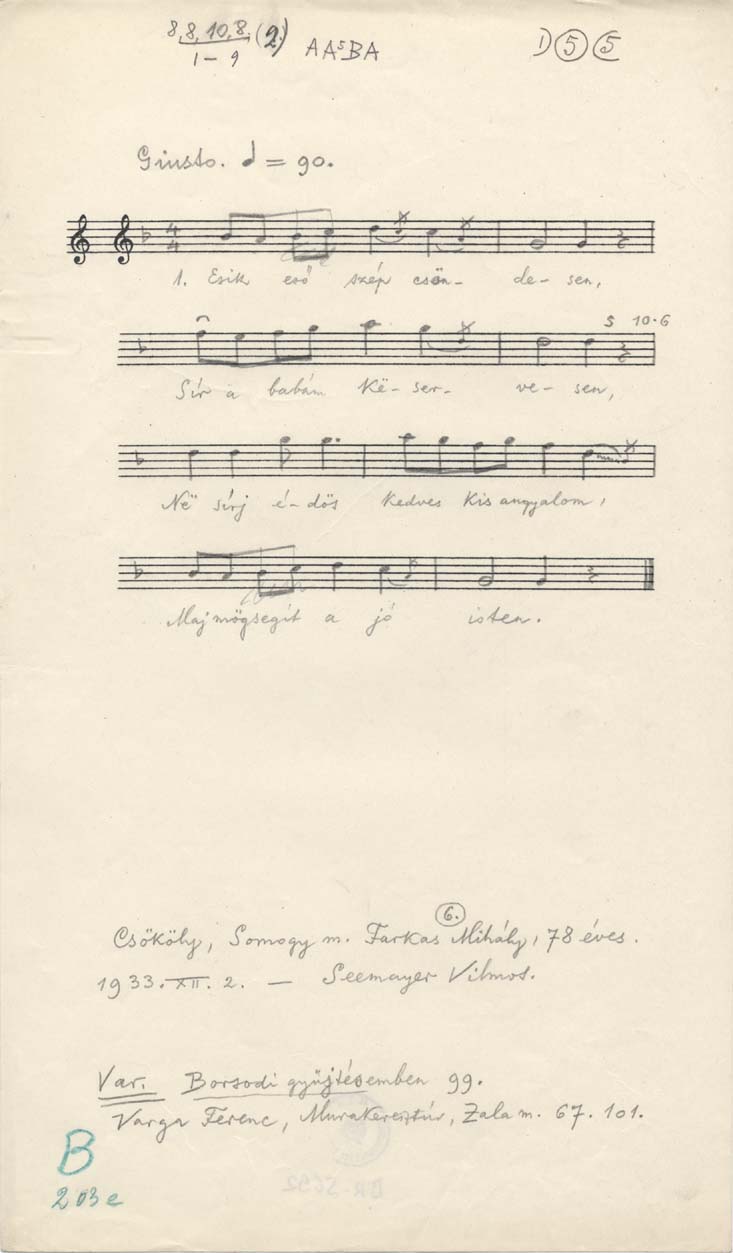 8, 8, 10, 8. (2.) A A⁵ B A 1) ⑤ ⑤
1 – 9
Giusto. ♩ = 90.
4
4
1. Esik eső szép csön- de- sen,
5 10·6
Sír a babám kë- ser- ve- sen,
Në sírj é-dös kedves kis angyalom,
Maj mögsegít a jó isten.
6.
Csököly, Somogy m. Farkas Mihály, 78 éves.
1933. XII. 2. — Seemayer Vilmos.
Var. Borsodi gyűjtésemben 99.
Varga Ferenc, Murakeresztúr, Zala m. 67. 101.
B
203e